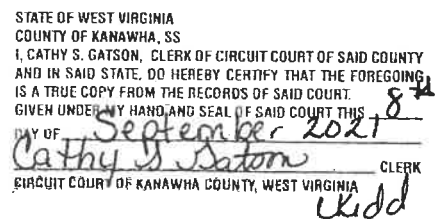 STATE OF WEST VIRGINIA
COUNTY OF KANAWHA, SS
I, CATHY S. GATSON, CLERK OF CIRCUIT COURT OF SAID COUNTY
AND IN SAID STATE, DO HEREBY CERTIFY THAT THE FOREGOING
IS A TRUE COPY FROM THE RECORDS OF SAID COURT.
GIVEN UNDER MY HAND AND SEAL OF SAID COURT THIS 8th
DAY OF September 2021
Cathy S Gatson CLERK
CIRCUIT COURT OF KANAWHA COUNTY, WEST VIRGINIA
Kidd